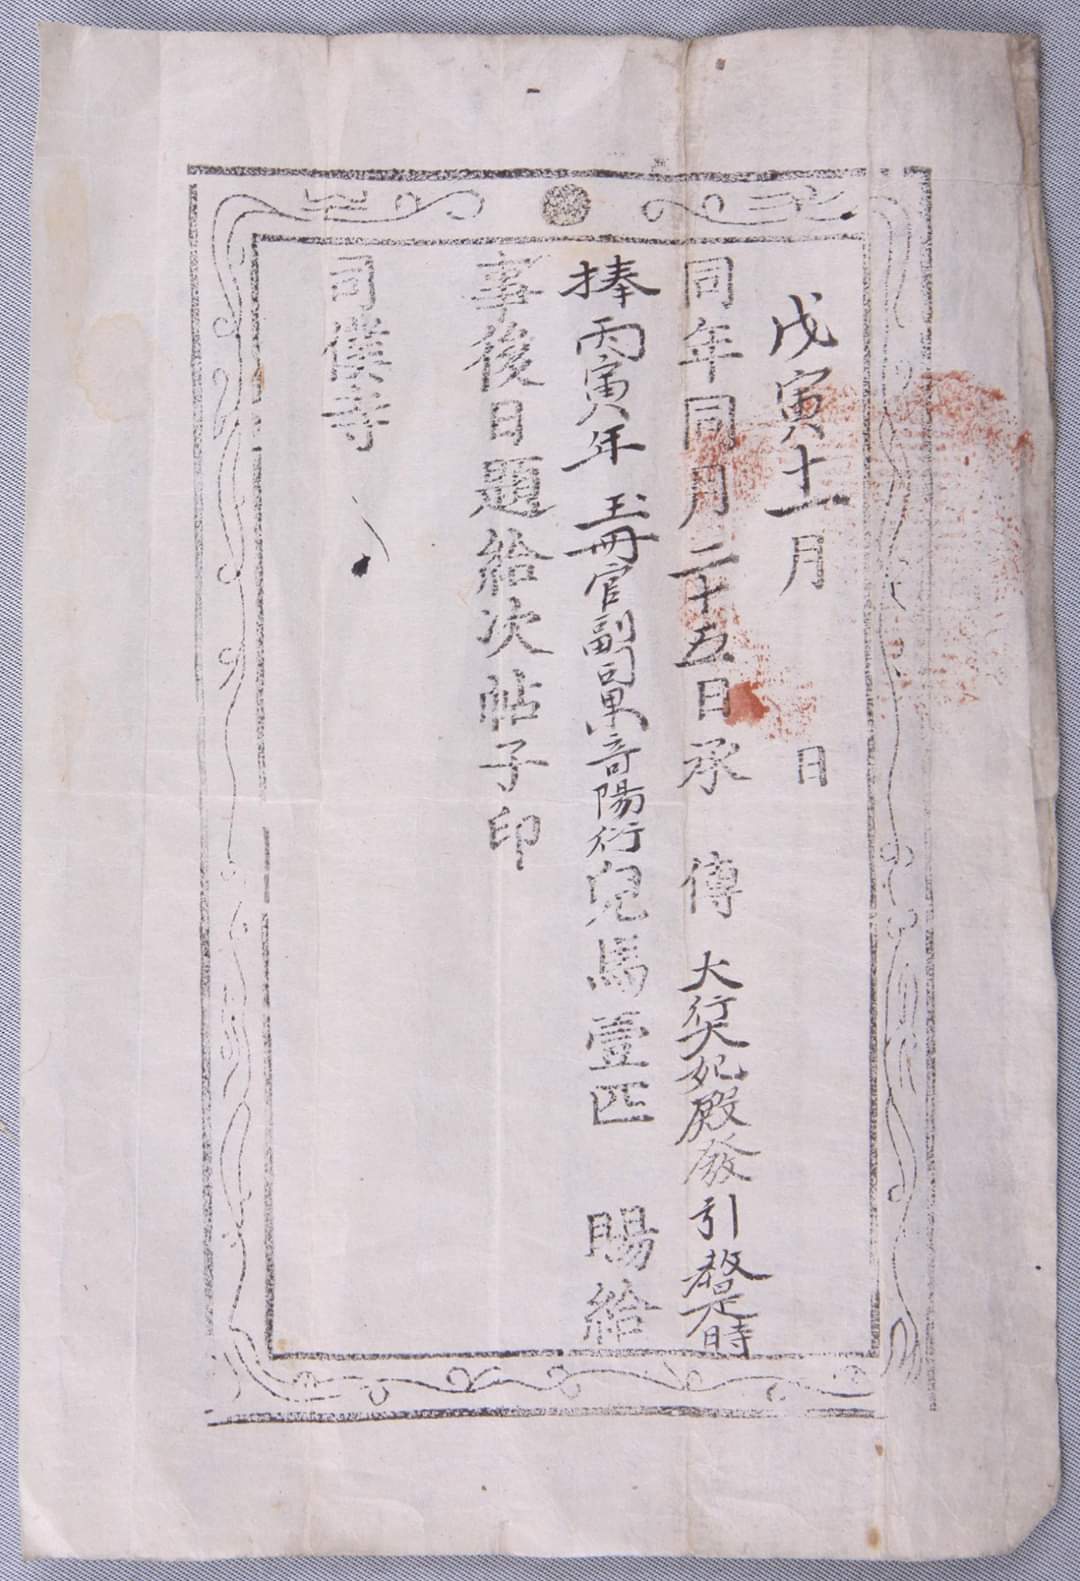 戊寅十一月　日
同年同月二十五日承　傳　大行大妃殿發引敎是時
捧丙寅年玉冊官副司果奇陽衍兒馬壹匹　賜給
事後日題給次帖子印
司僕寺